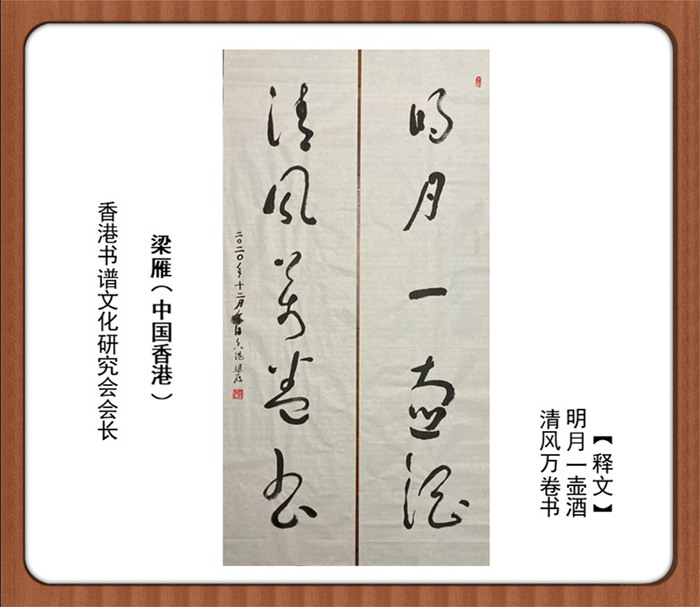 【释文】
明月一壶酒
清风万卷书
明月一壶酒
清风万卷书
二〇二〇年十二月 梁雁
梁雁（中国香港）
香港书谱文化研究会会长